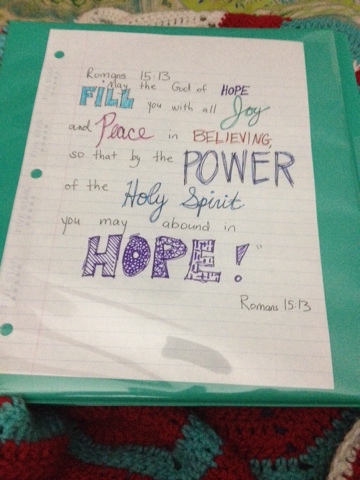 Romans 15:13
"May the God of HOPE
FILL you with all Joy
and Peace in BELIEVING,
so that by the POWER
of the Holy Spirit
you may abound in
HOPE!"
Romans 15:13